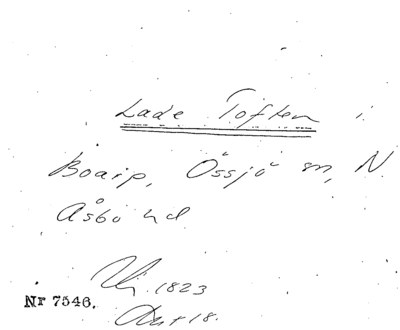 Lade Toften i
Boarp, Össjö sn, N.
Åsbo hd
1823
Nr 7546.
18.